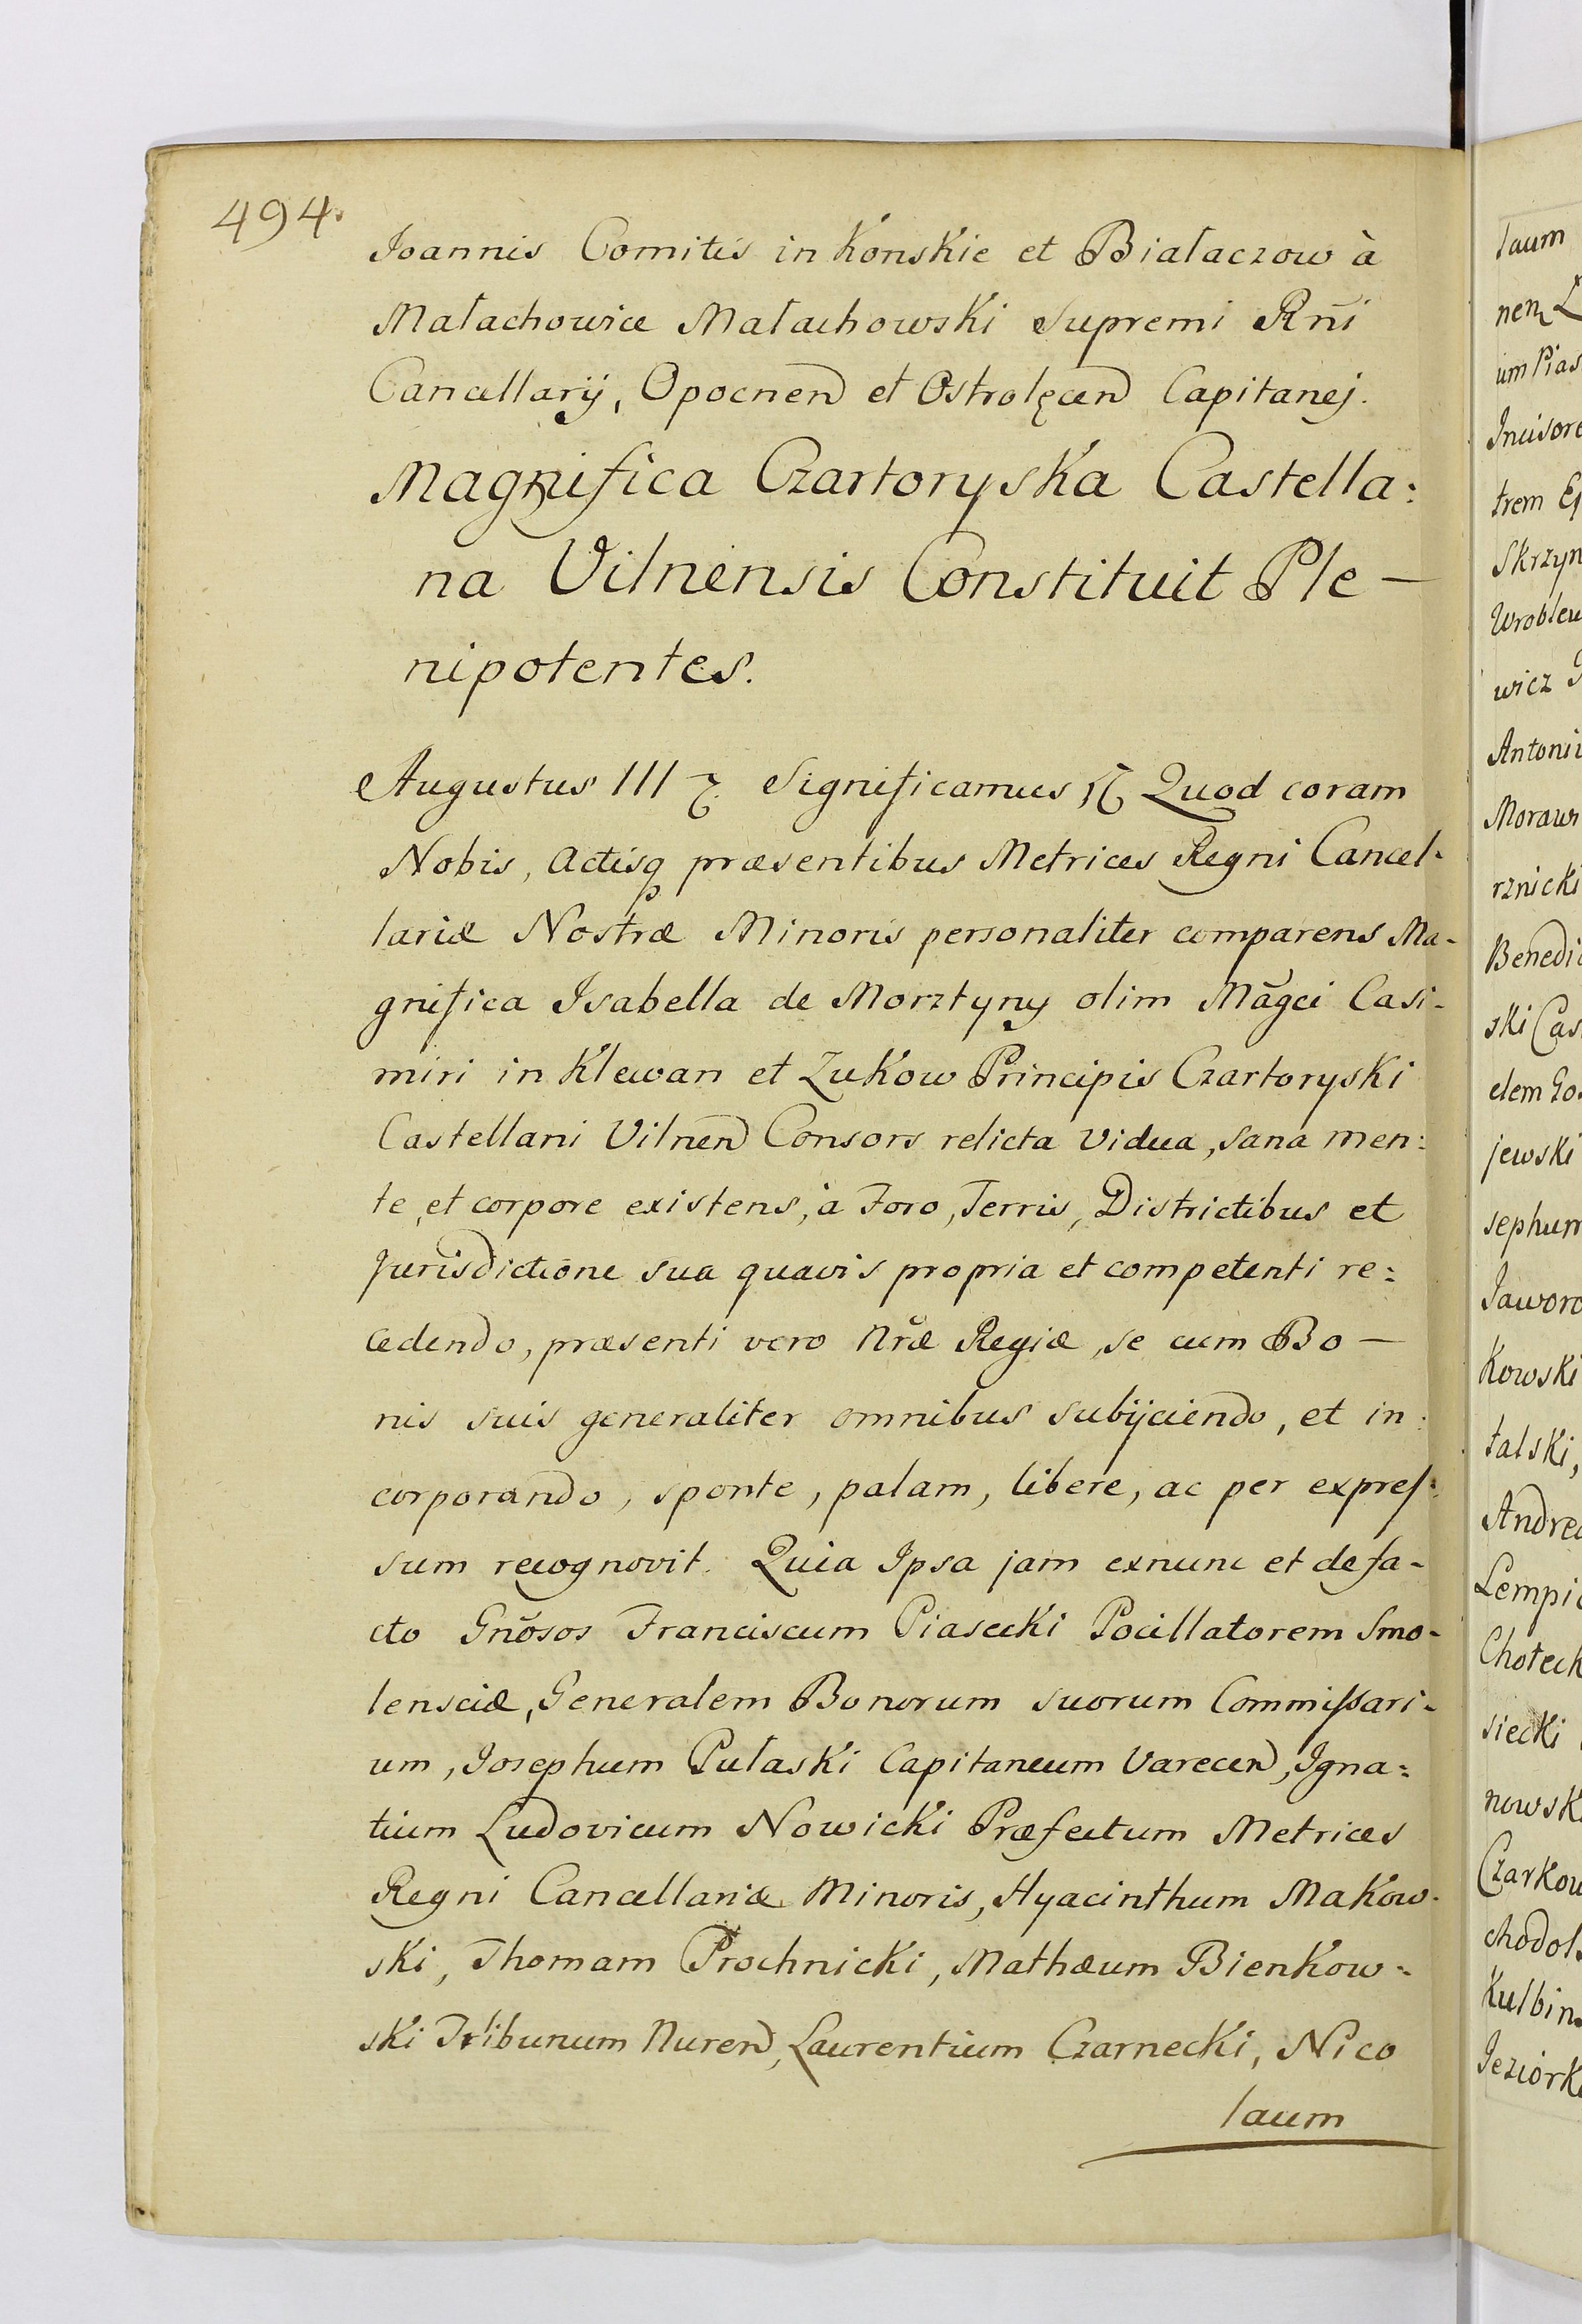 494.
Joannis Comitis in Końskie et Białaczow à
Małachowice Małachowski Supremi Rñi
Cancellarij, Opocnen et Ostrolęcen Capitanej.
Magnifica Czartoryska Castella:
na Vilnensis Constituit Ple-
nipotentes.
Augustus III Significamus Quod coram
Nobis, Actisq præsentibus Metrices Regni Cancel-
lariæ Nostræ Minoris personaliter comparens Ma-
gnifica Isabella de Morztyny olim Mãgci Casi-
miri in Klewan et Zukow Principis Czartoryski
Castellani Vilnen Consors relicta Vidua, sana men:
te, et corpore existens, à Foro, Terris, Districtibus et
Jurisdictione sua quavis propria et competenti re:
cedendo, præsenti vero Nr̃æ Regiæ, se cum Bo-
nis suis generaliter omnibus subijciendo, et in:
corporando, sponte, palam, libere, ac per expres:
sum recognovit. Quia Ipsa jam exnunc et de fa-
cto Gnõsos Franciscum Piasecki Pocillatorem Smo-
lensciæ, Generalem Bonorum suorum Commissari-
um, Josephum Pułaski Capitaneum Varecen, Igna:
tium Ludovicum Nowicki Præfectum Metrices
Regni Cancellariæ Minoris, Hyacinthum Makow-
ski, Thomam Prochnicki, Mathæum Bienkow-
ski Tribunum Nuren, Laurentium Czarnecki, Nico
laum
laum
nen
um Pias
Incisore
trem
Skrzyn
Wroblew
wicz
Antoni
Moraw
rznicki
Benedic
ski Cas
elem
jewski
sephum
Jaworo
Kowski
talski,
Andre
Lempic
Choteck
siecki
nowsk
Czarkow
chodol
Kulbin
Jeziork